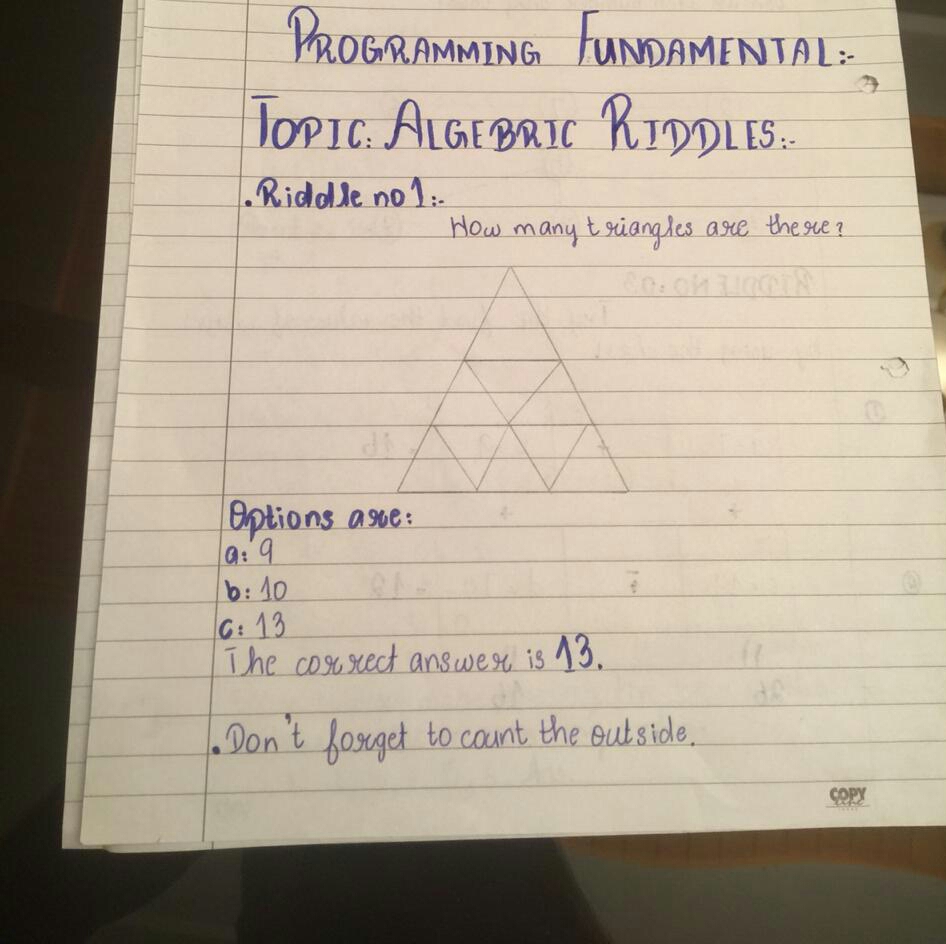 PROGRAMMING FUNDAMENTAL:-
TOPIC: ALGEBRIC RIDDLES:-
.Riddle no1:-
How many triangles are there?
Options are:
a: 9
b: 10
c: 13
The correct answer is 13.
.Don't forget to count the outside.
COPY